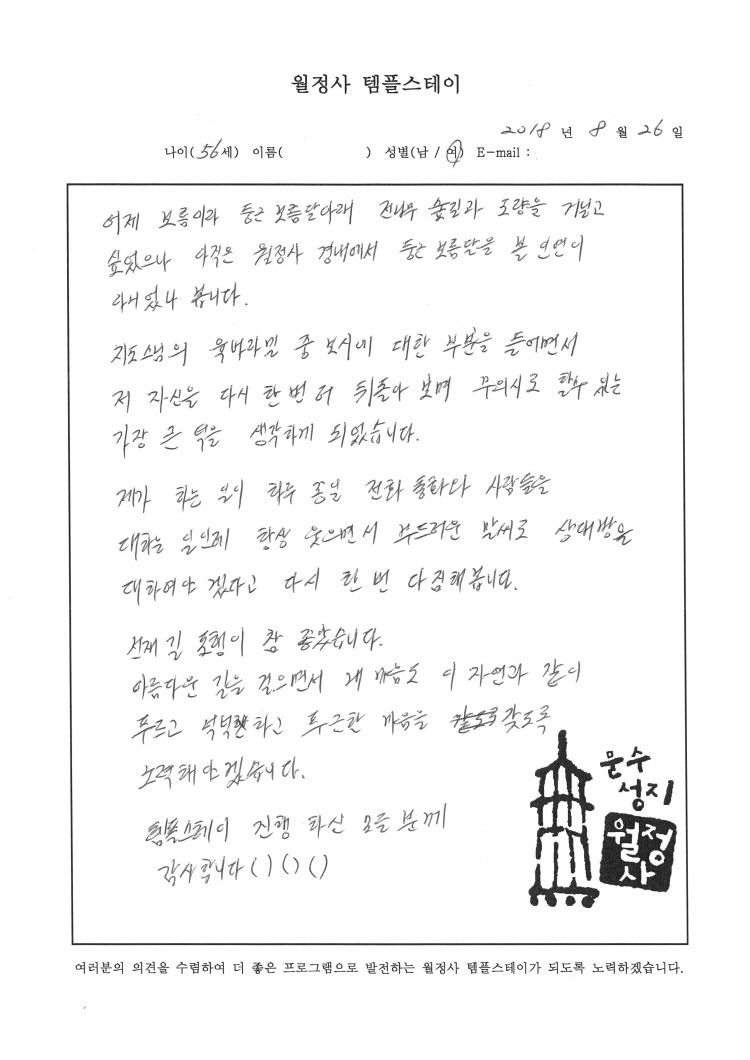 월정사 템플스테이
2018 년 8 월 26 일
나이(56세) 이름( ) 성별(남 / 여) E-mail :
어제 보름이라 둥근 보름달아래 전나무 숲길과 도량을 거닐고
싶었으나 아직은 월정사 경내에서 둥근 보름달을 본 인연이
아니었나 봅니다.
지도스님의 육바라밀 중 보시에 대한 부분을 들으면서
저 자신을 다시 한번 더 뒤돌아 보며 무의시로 할수 있는
가장 큰 덕을 생각하게 되었습니다.
제가 하는 일이 하루 종일 전화 통화와 사람들을
대하는 일인데 항상 웃으면서 부드러운 말씨로 상대방을
대하여야 겠다고 다시 한 번 다짐해봅니다.
선재 길 포행이 참 좋았습니다.
아름다운 길을 걸으면서 내 마음도 이 자연과 같이
푸르고 넉넉하고 푸근한 마음을 갖도록
노력해야겠습니다.
템플스테이 진행 하신 모든 분께
감사합니다 ( ) ( ) ( )
문수
성지
월정
사
여러분의 의견을 수렴하여 더 좋은 프로그램으로 발전하는 월정사 템플스테이가 되도록 노력하겠습니다.